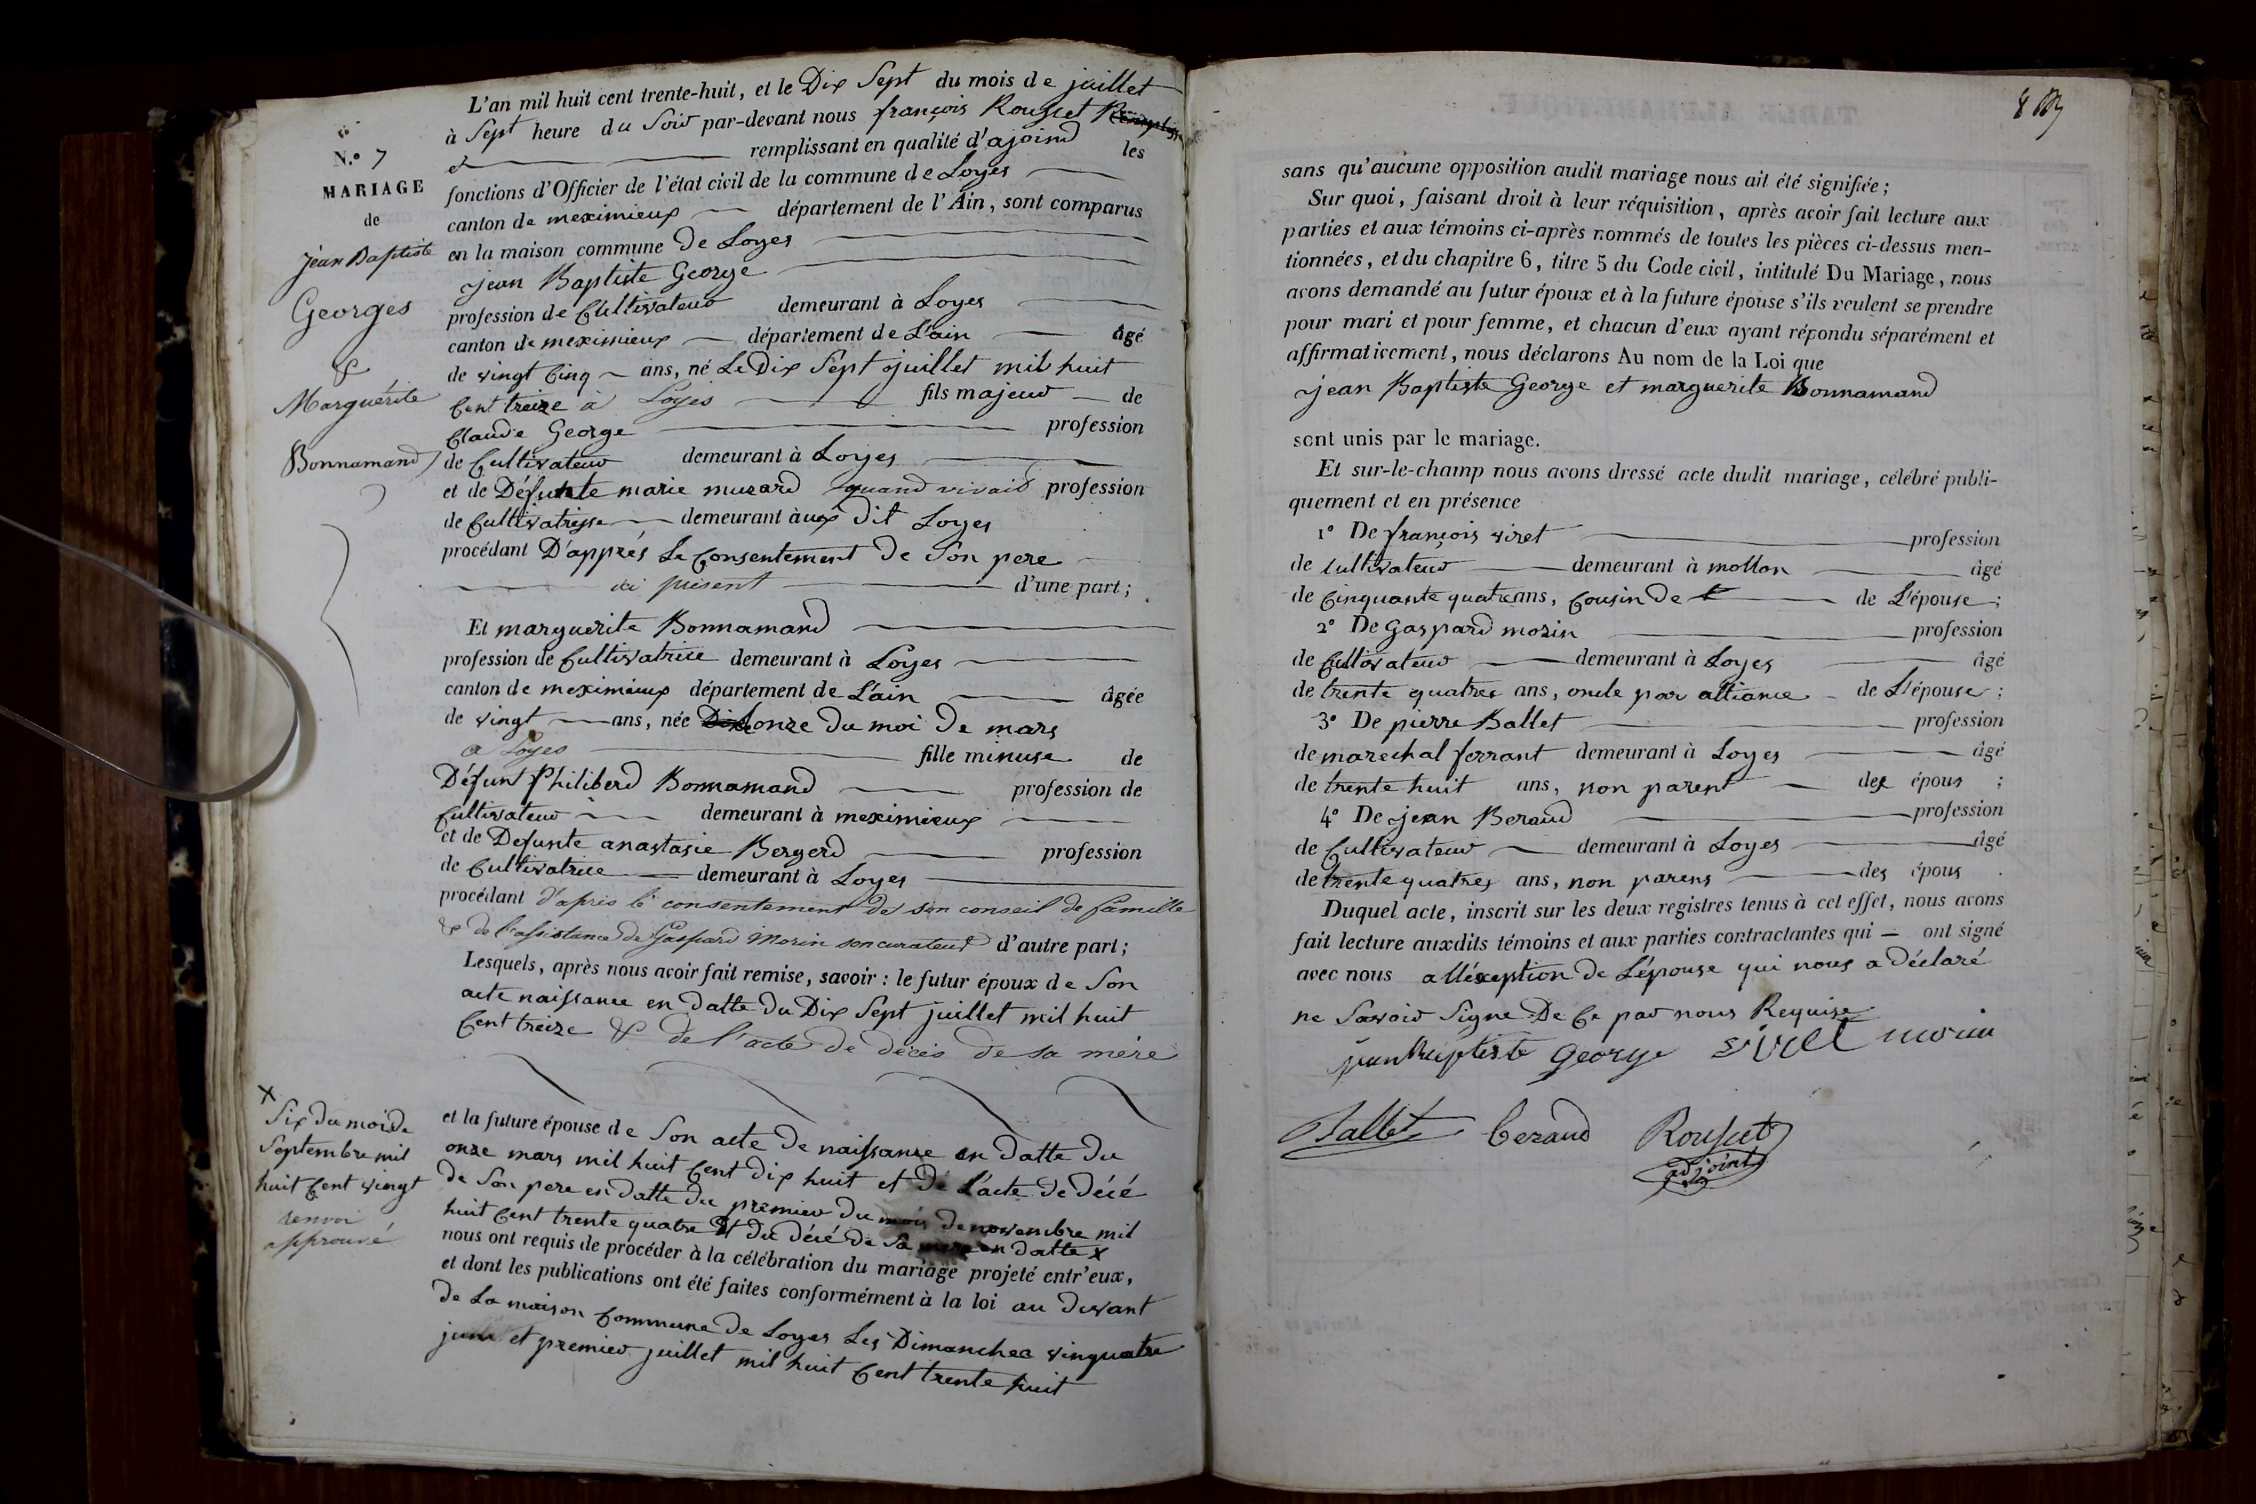 N.º 7
MARIAGE
de
jean Baptiste
Georges
&
Marguerite
Bonnamand
L'an mil huit cent trente-huit, et le Dix Sept du mois de juillet
à Sept heure du Soir par-devant nous françois Rousset
remplissant en qualité d'ajoind les
fonctions d'Officier de l'état civil de la commune de Loyes
canton de meximieux département de l'Ain, sont comparus
en la maison commune de Loyes
jean Baptiste George
profession de Cultivateur demeurant à Loyes
canton de meximieux département de L'ain âgé
de vingt Cinq ans, né Le Dix Sept juillet mil huit
Cent treize à Loyes fils majeur de
Claude George profession
de Cultivateur demeurant à Loyes
et de Défunte marie muzard quand vivait profession
de Cultivatrisse demeurant àux dit Loyes
procédant D'apprés Le Consentement de Son pere
ici présent d'une part;
Et marguerite Bonnamand
profession de Cultivatrice demeurant à Loyes
canton de meximieux département de L'ain âgée
de vingt ans, née Dix onze du moi de mars
a Loyes fille minuse de
Défunt Philiberd Bonnamand profession de
Cultivateur demeurant à meximieux
et de Defunte anastasie Bergerd profession
de Cultivatrice demeurant à Loyes
procédant d'après le consentement de son conseil de famille
& de l'assistance de Gaspard Morin son curateur d'autre part;
Lesquels, après nous avoir fait remise, savoir: le futur époux de Son
acte naissance en datte du Dix Sept juillet mil huit
Cent treize & de l'acte de décès de sa mère
et la future épouse de Son acte de naissance en datte du
onze mars mil huit Cent dix huit et de L'acte de décé
de Son pere en datte du premier du mois de novembre mil
huit Cent trente quatre Et du décé de Sa mere en datte X
nous ont requis de procéder à la célébration du mariage projeté entr'eux,
et dont les publications ont été faites conformément à la loi au devant
de La maison Commune de Loyes Les Dimanches vinquatre
juin et premier juillet mil huit Cent trente huit
X
Six du moi de
Septembre mil
huit Cent vingt
renvoi
approuvé
sans qu'aucune opposition audit mariage nous ait été signifiée;
Sur quoi, faisant droit à leur réquisition, après avoir fait lecture aux
parties et aux témoins ci-après nommés de toutes les pièces ci-dessus men-
tionnées, et du chapitre 6, titre 5 du Code civil, intitulé Du Mariage, nous
avons demandé au futur époux et à la future épouse s'ils veulent se prendre
pour mari et pour femme, et chacun d'eux ayant répondu séparément et
affirmativement, nous déclarons Au nom de la Loi que
jean Baptiste George et marguerite Bonnamand
sont unis par le mariage.
Et sur-le-champ nous avons dressé acte dudit mariage, célébré publi-
quement et en présence
1º De françois viret profession
de cultivateur demeurant à mollon âgé
de Cinquante quatre ans, Cousin de de L'épouse;
2º De Gaspard morin profession
de Cultivateur demeurant à Loyes âgé
de trente quatres ans, oncle par alliance de L'épouse;
3º De pierre Ballet profession
de marechal ferrant demeurant à Loyes âgé
de trente huit ans, non parent des épous;
4º De jean Beraud profession
de Cultivateur demeurant à Loyes âgé
de trente quatres ans, non parens des épous
Duquel acte, inscrit sur les deux registres tenus à cet effet, nous avons
fait lecture auxdits témoins et aux parties contractantes qui ont signé
avec nous alléxeption de L'épouse qui nous a déclaré
ne Savoir Signe De Ce par nous Requise
jean Baptiste George viret morin
Ballet beraud Rousset
adjoint